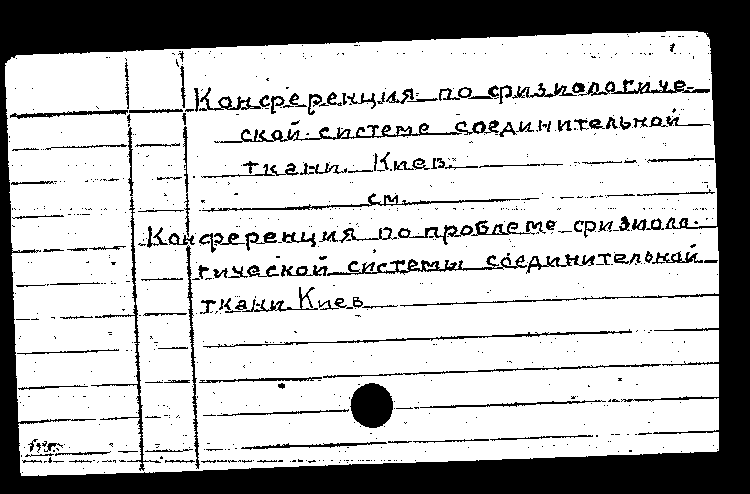 Конференция по физиологиче-
ской системе соединительной
ткани. Киев.
см.
Конференция по проблеме физиоло-
гической системы соединительной
ткани. Киев